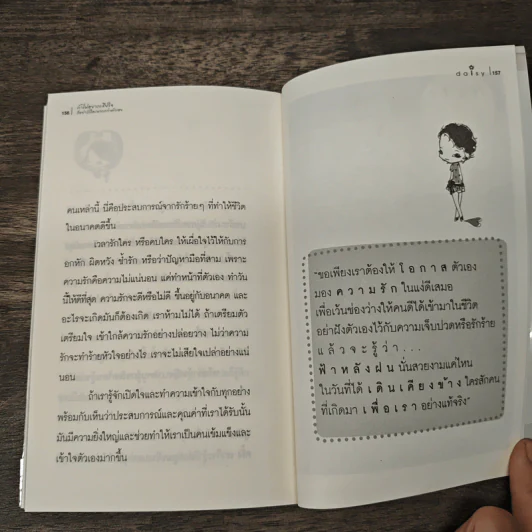 คนเหล่านี้ นี่คือประสบการณ์จากรักร้ายๆ ที่ทำให้ชีวิต
ในอนาคตดีขึ้น
เวลารักใคร หรือคบใคร ให้เผื่อใจไว้ให้กับการ
อกหัก ผิดหวัง ช้ำรัก หรือว่าปัญหามือที่สาม เพราะ
ความรักคือความไม่แน่นอน แค่ทำหน้าที่ตัวเอง ทำวัน
นี้ให้ดีที่สุด ความรักจะดีหรือไม่ดี ขึ้นอยู่กับอนาคต และ
อะไรจะเกิดมันก็ต้องเกิด เราห้ามไม่ได้ ถ้าเตรียมตัว
เตรียมใจ เข้าใกล้ความรักอย่างปล่อยวาง ไม่ว่าความ
รักจะทำร้ายหัวใจอย่างไร เราจะไม่เสียใจเปล่าอย่างแน่
นอน
ถ้าเรารู้จักเปิดใจและทำความเข้าใจกับทุกอย่าง
พร้อมกับเห็นว่าประสบการณ์และคุณค่าที่เราได้รับนั้น
มันมีความยิ่งใหญ่และช่วยทำให้เราเป็นคนเข้มแข็งและ
เข้าใจตัวเองมากขึ้น
daisy 157
"ขอเพียงเราต้องให้ โอกาส ตัวเอง
มอง ความรัก ในแง่ดีเสมอ
เพื่อเว้นช่องว่างให้คนดีได้เข้ามาในชีวิต
อย่าฝังตัวเองไว้กับความเจ็บปวดหรือรักร้าย
แล้วจะรู้ว่า...
ฟ้าหลังฝน นั้นสวยงามแค่ไหน
ในวันที่ได้ เดินเคียงข้าง ใครสักคน
ที่เกิดมา เพื่อเรา อย่างแท้จริง"